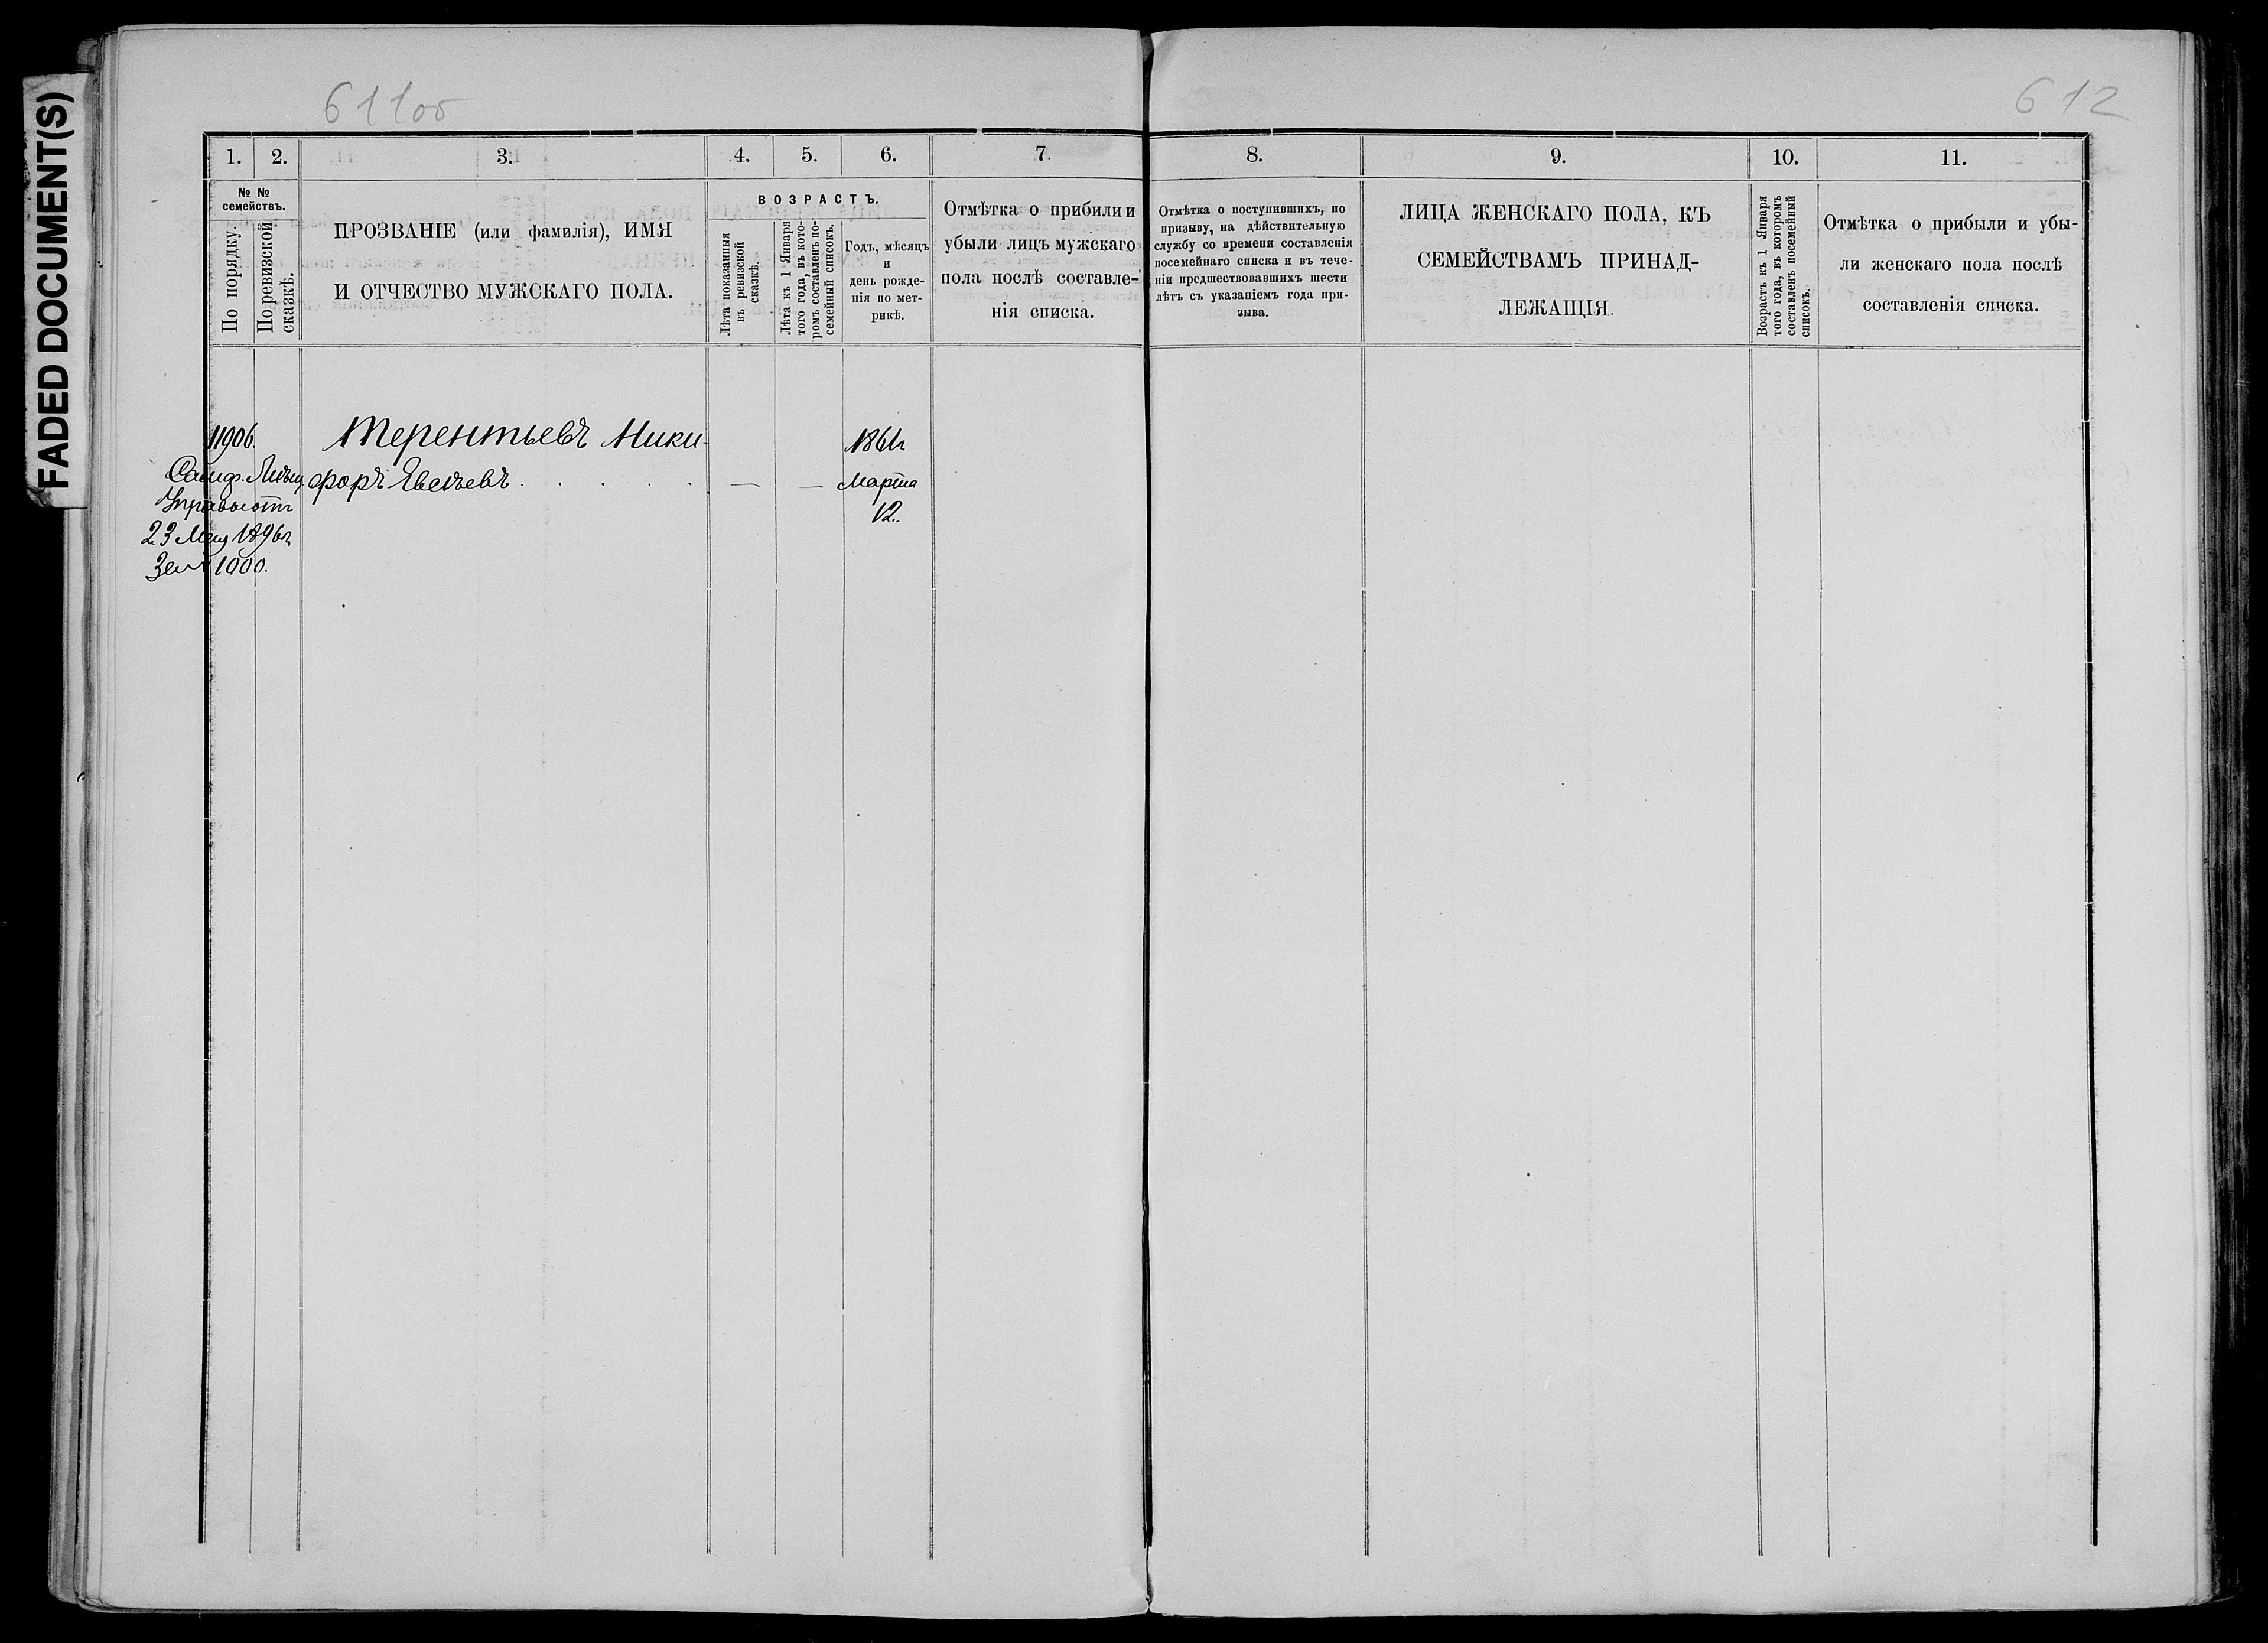 FADED DOCUMENT(S)
611об
612
1. 2. 3. 4. 5. 6. 7. 8. 9. 10. 11.
№ №
семействъ.
По порядку.
По ревизской
сказкѣ.
ПРОЗВАНІЕ (или фамилія), ИМЯ
И ОТЧЕСТВО МУЖСКАГО ПОЛА.
ВОЗРАСТЪ.
Лѣта показанныя
въ ревизской
сказкѣ.
Лѣта къ 1 Января
того года, въ кото-
ромъ составленъ по-
семейный списокъ.
Годъ, мѣсяцъ
и
день рожде-
нія по мет-
рикѣ.
Отмѣтка о прибили и
убыли лицъ мужскаго
пола послѣ составле-
нія списка.
Отмѣтка о поступившихъ, по
призыву, на дѣйствительную
службу со времени составленія
посемейнаго списка и въ тече-
ніи предшествовавшихъ шести
лѣтъ съ указаніемъ года при-
зыва.
ЛИЦА ЖЕНСКАГО ПОЛА, КЪ
СЕМЕЙСТВАМЪ ПРИНАД-
ЛЕЖАЩІЯ.
Возрастъ къ 1 Января
того года, въ которомъ
составленъ посемейный
списокъ.
Отмѣтка о прибыли и убы-
ли женскаго пола послѣ
составленія списка.
11906.
23 Мая 1896г
1000.
Терентьевъ Ники-
форъ Евсѣевъ . . . . . — —
1861г
Марта
12.